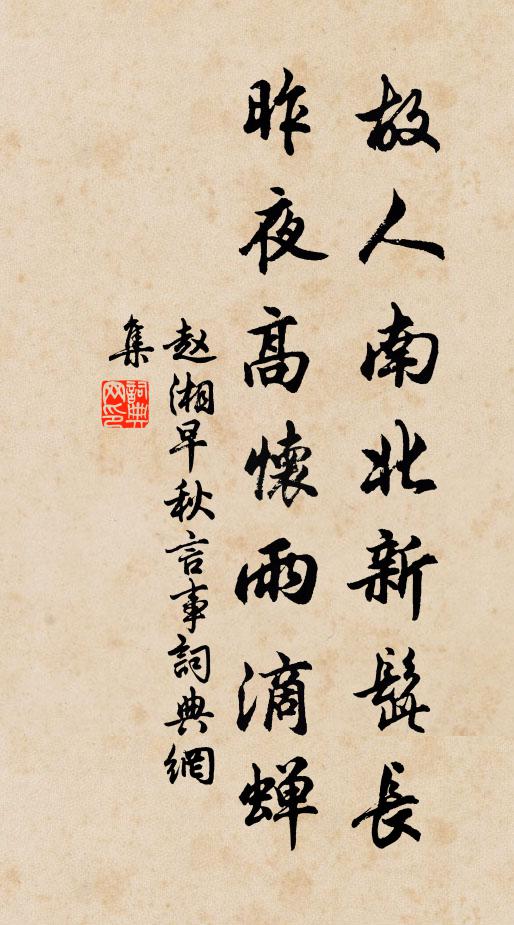 故人南北新髭長
昨夜高懷雨滴蝉
赵湘早秋言事詞典網
集
詞典
网印